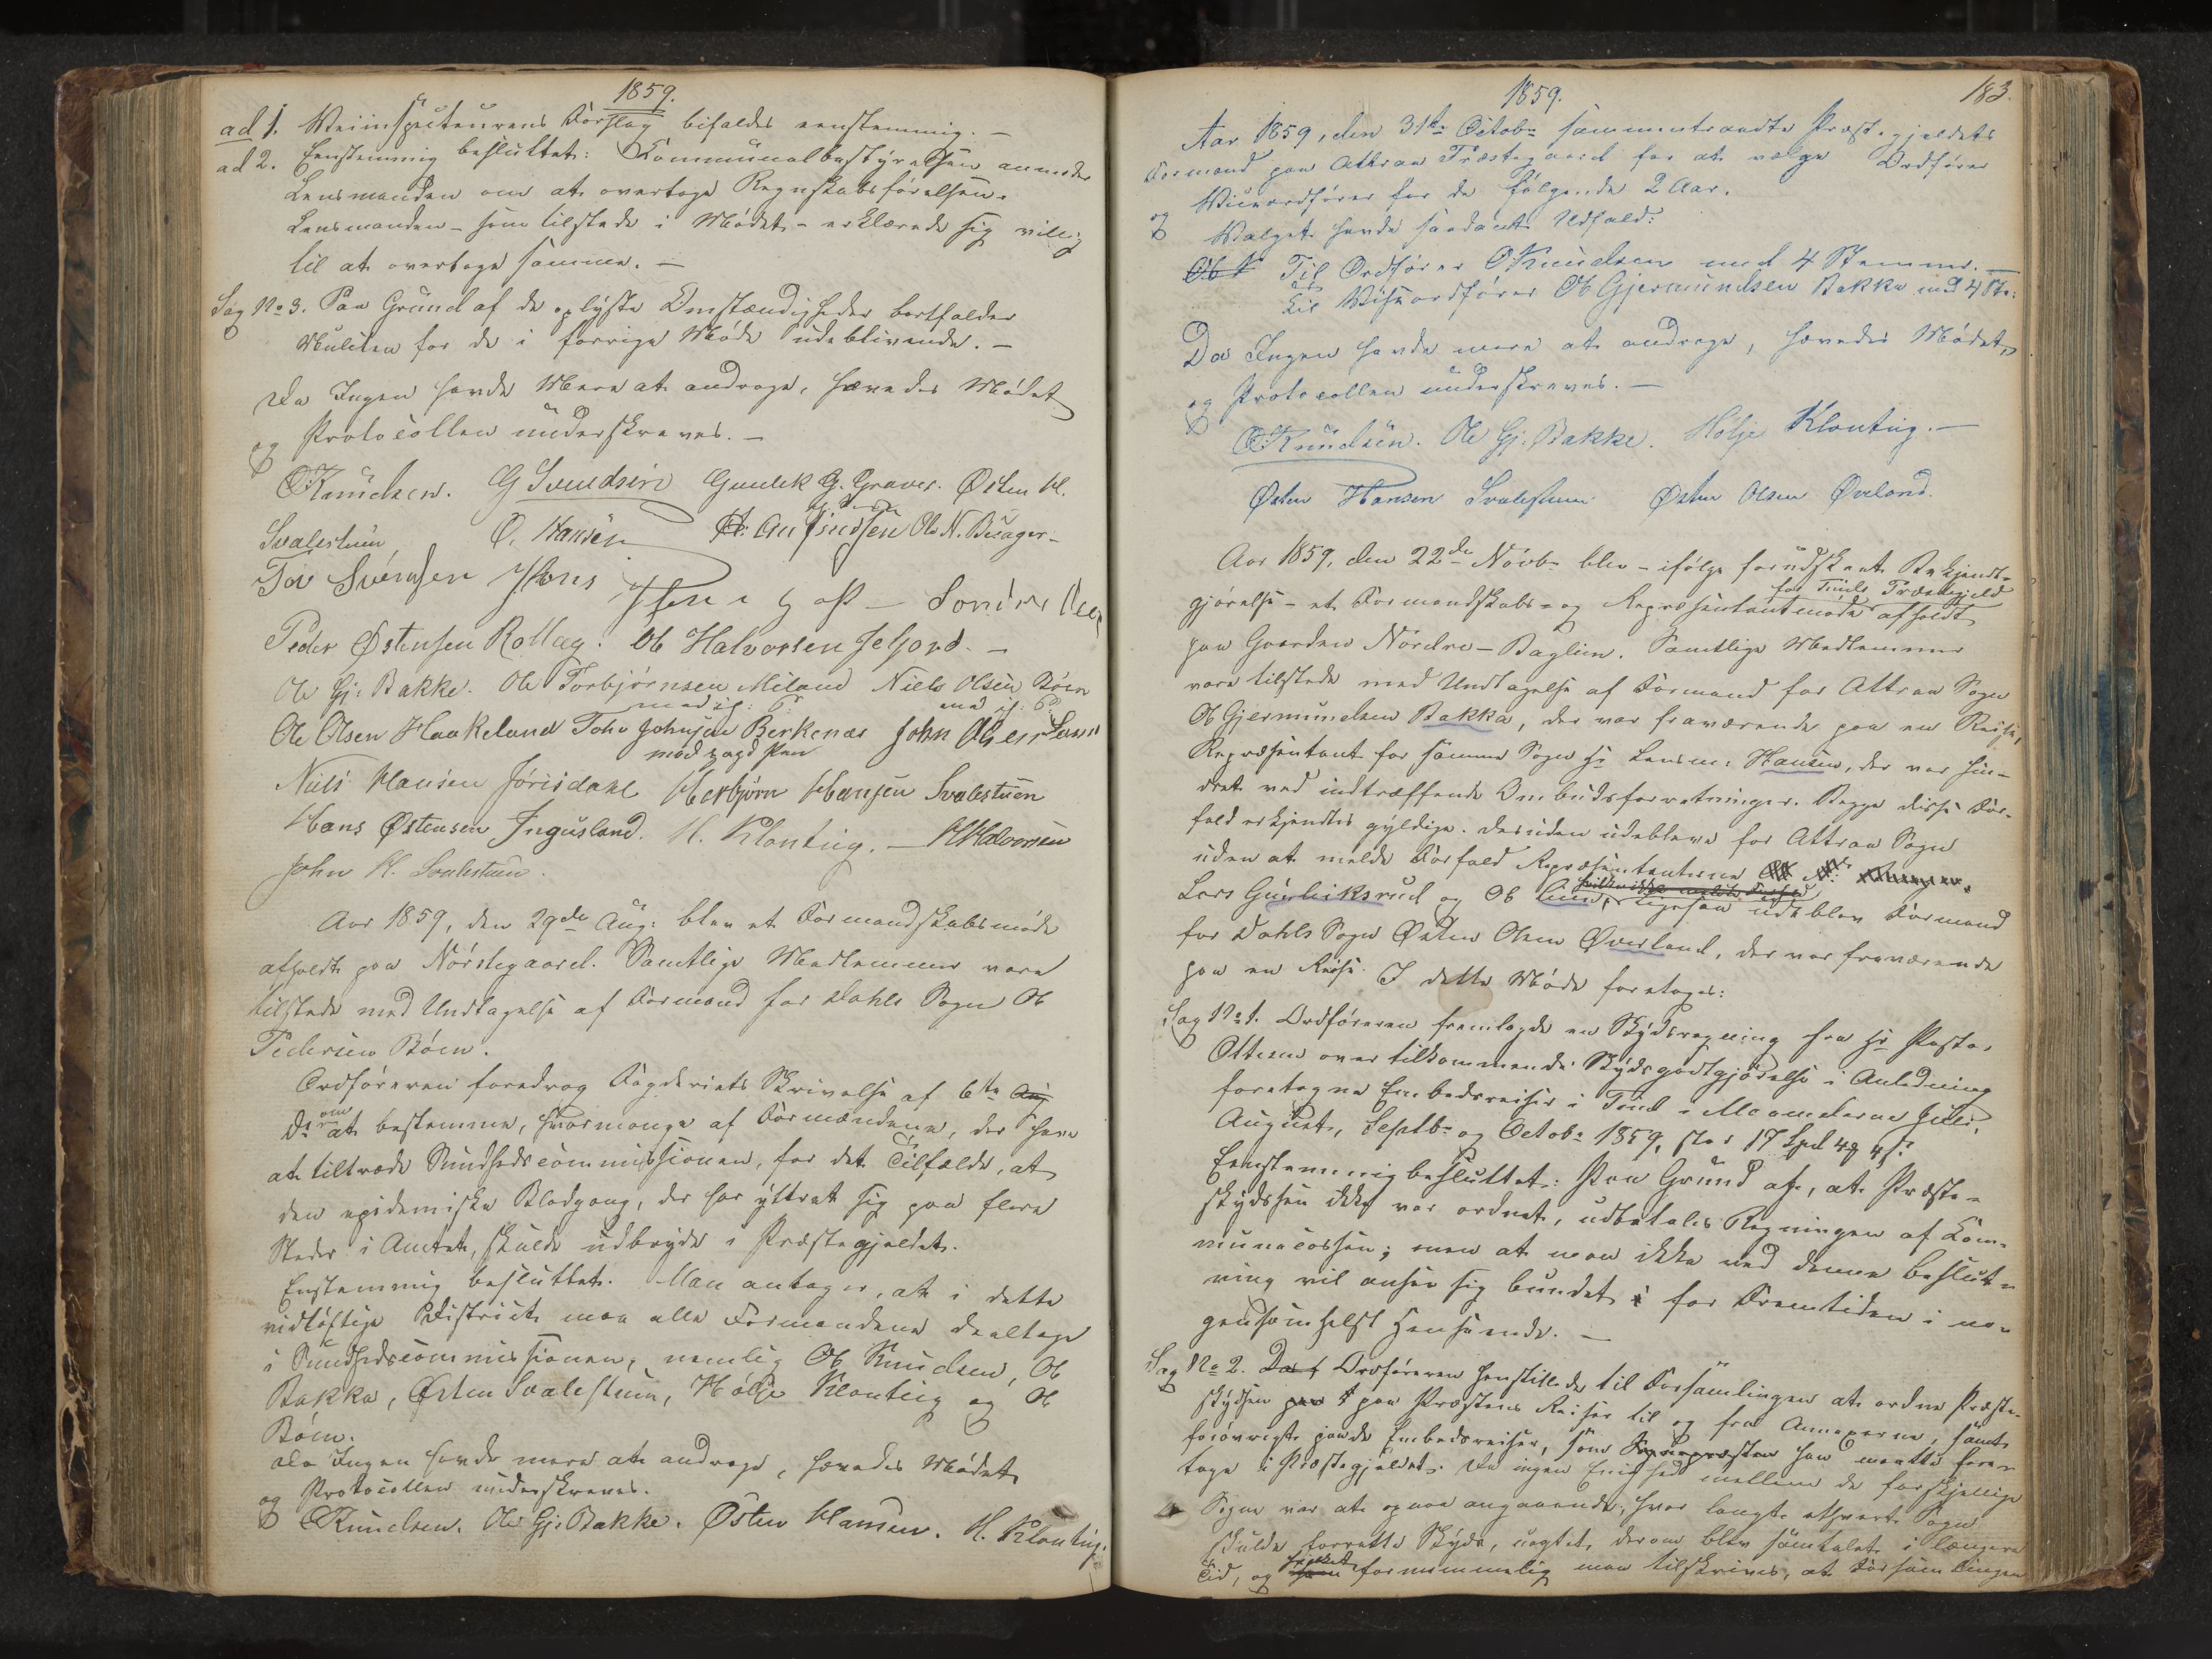 1859.
ad 1. Veiinspecteurens Forslag bifaldes eenstemmig. –
ad 2. Eenstemmig besluttet: Communalbestyrelsen anmoder
Lensmanden om at overtage Regnskabsførelsen.
Lensmanden – som tilstede i Mødet – erklærede sig villig
til at overtage samme. –
Sag No 3. Paa Grund af de oplyste Omstændigheder bortfalder
Mulcten for de i forrige Møde udeblivende. –
Da Ingen havde Mere at andrage, hævedes Mødet
og Protocollen underskreves. –
OKnudsen. G Svendsen Gunlek G. Graver. Østen H.
Svalestuen O. Hansen Ole N. Busager –
Tov Svensen
Peder Østensen Rollag. Ole Halvorsen
Ole Gj: Bakke. Ole Torbjørnsen Miland Niels Olsen Böen
med if: P: med if: P:
Ole Olsen Haakeland John Johnsen Berkenæs John
med paaholden Pen
Niels Hansen Jørisdahl Herbjørn Hansen Svalestuen
Hans Østensen Ingulsland. H. Klonteig. – HHalvorsen
John H. Svalestuen.
Aar 1859, den 29de Aug: blev et Formandskabsmøde
afholdt paa Nórstegaard. Samtlige Medlemmer vare
tilstede med Undtagelse af Formand for Dahls Sogn Ole
Pedersen Böen.
Ordføreren foredrog Fogderiets Skrivelse af 6te Aug
D: om at bestemme, hvormange af Formændene, der have
at tiltræde Sundhedscommissionen, for det Tilfælde, at
den epidemiske Blodgang, der har yttret sig paa flere
Steder i Amtet, skulde udbryde i Præstegjeldet.
Enstemmig besluttet: Man antager, at i dette
vidtløftige District maa alle Formændene deeltage
i Sundhedscommissionen, nemlig Ole Knudsen, Ole
Bakka, Østen Svalestuen, Hölje Klonteig og Ole
Böen.
Da Ingen havde mere at andrage, hævedes Mødet
og Protocollen underskreves.
OKnudsen. Ole Gj: Bakke. Østen Hansen. H. Klonteig.
1859.
183.
Aar 1859, den 31te Octobr sammentraadte Præstegjeldets
Formænd paa Attraa Præstegaard for at vælge Ordfører
og Viceordfører for de følgende 2 Aar.
Valget havde saadant Udfald:
Til Ordfører OKnudsen med 4 Stemmer. –
til Viseordfører Ole Gjermundsen Bakka med 4 St:
Da Ingen havde mere at andrage, hævedes Mødet,
og Protocollen underskreves. –
OKnudsen. Ole Gj: Bakke. Hölje Klonteig. –
Østen Hansen Svalestuen Østen Olsen Øverland.
Aar 1859, den 22de Novbr blev – ifølge forudskeet Bekjendt-
gjørelse – et Formandskabs- og Repræsentantmøde for Tinds Præstegjeld afholdt
paa Gaarden Nordre-Bøglim. Samtlige Medlemmer
vare tilstede med Undtagelse af Formand for Attraa Sogn
Ole Gjermundsen Bakka, der var fraværende paa en Reise,
Repræsentant for samme Sogn Hr Lensm: Hansen, der var hin-
dret ved indtræffende Ombudsforretninger. Begge disse For-
fald erkjendtes gyldige. Desuden udebleve for Attraa Sogn
uden at melde Forfald Repræsentanterne
Lars Gunleiksrud og Ole ligesaa udeblev Formand
for Dahls Sogn Østen Olsen Øverland, der var fraværende
paa en Reise. I dette Møde foretoges:
Sag No 1. Ordføreren fremlagde en Skydsregning fra Hr Pastor
Ottesen over tilkommende Skydsgodtgjørelse i Anledning
foretagne Embedsreiser i Tind i Maanederne Juli,
August, Septbr og Octobr 1859, stor 17 Spd
Eenstemmig besluttet: Paa Grund af, at Præste-
skydsen ikke var ordnet, udbetales Regningen af Com-
munecassen; men at man ikke ved denne Beslut-
ning vil ansee sig bundet for Fremtiden i no-
gensomhelst Henseende. –
Sag No 2. Ordføreren henstillede til Forsamlingen at ordne Præste-
skydsen paa Præstens Reiser til og fra Annexerne, samt
forøvrigt paa de Embedsreiser, som han maatte fore-
tage i Præstegjeldet. Da ingen Enighed mellem de forskjellige
Sogne var at opnaa angaaende, hvor langt ethvert Sogn
skulde forrette Skyds, uagtet derom blev samtalet i længere
Tid, og hvilket fornemmelig maa tilskrives, at Forsamlingen